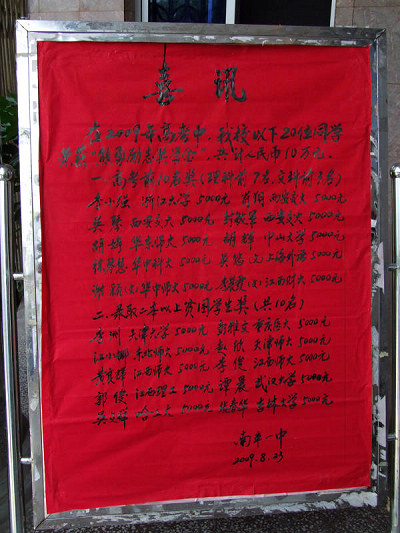 喜讯
在2009年高考中,我校以下20位同学
荣获"能勇励志奖学金",共计人民币10万元。
一.高考前10名奖(理科前7名,文科前3名)
李小强 浙江大学 5000元 西安交大 5000元
吴 西安交大 5000元 西安交大 5000元
胡 华东师大 5000元 胡辉 中山大学 5000元
华中科大 5000元 (文)上海外语 5000元
谢颖(文)华中师大 5000元 (文)江西财大 5000元
二.录取二本以上贫困学生奖(共10名)
李洲 天津大学 5000元 彭雅文 重庆医大 5000元
江小娜 东北师大 5000元 赵欣 天津师大 5000元
黄 江西师大 5000元 李俊 江西师大 5000元
郭俊 江西理工 5000元 谭晨 武汉大学 5000元
吴文祥 哈工大 5000元 吉林大学 5000元
南丰一中
2009.8.23